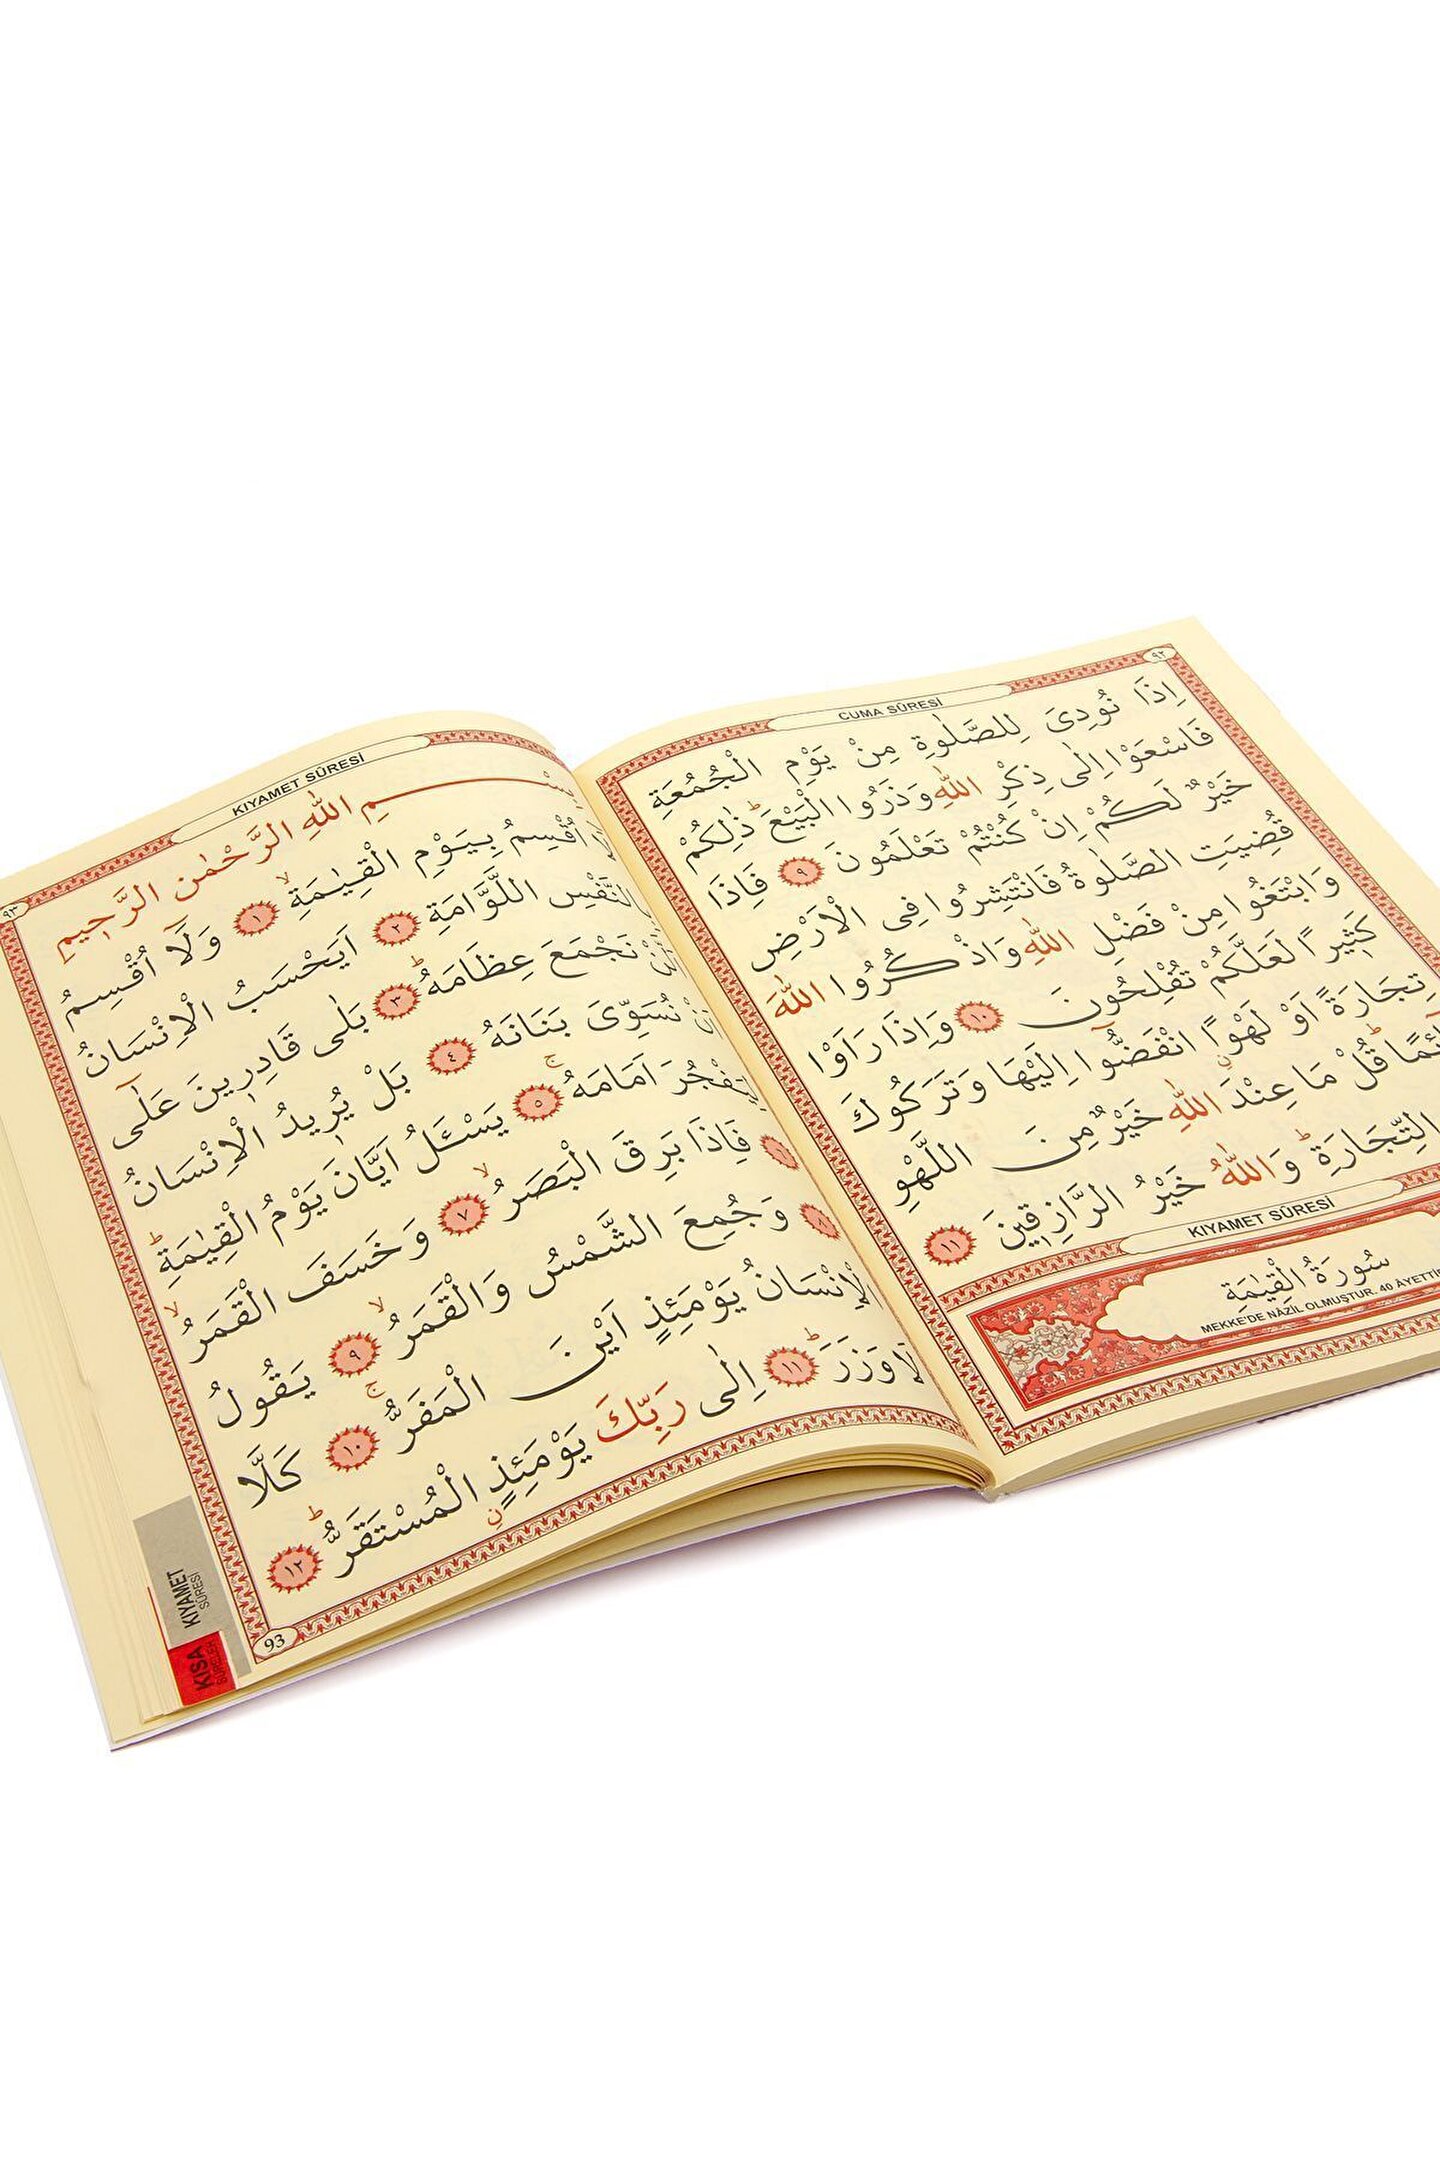 ٩٢
CUMA SÛRESİ
اِذَا نُودِىَ لِلصَّلٰوةِ مِنْ يَوْمِ الْجُمُعَةِ
فَاسْعَوْا اِلٰى ذِكْرِ اللّٰهِ وَذَرُوا الْبَيْعَۜ ذٰلِكُمْ
خَيْرٌ لَكُمْ اِنْ كُنْتُمْ تَعْلَمُونَ ٩ فَاِذَا
قُضِيَتِ الصَّلٰوةُ فَانْتَشِرُوا فِى الْاَرْضِ
وَابْتَغُوا مِنْ فَضْلِ اللّٰهِ وَاذْكُرُوا اللّٰهَ
كَثٖيرًا لَعَلَّكُمْ تُفْلِحُونَ ١٠ وَاِذَا رَاَوْا
تِجَارَةً اَوْ لَهْوًاۨ انْفَضُّٓوا اِلَيْهَا وَتَرَكُوكَ
قُلْ مَا عِنْدَ اللّٰهِ خَيْرٌ مِنَ اللَّهْوِ
التِّجَارَةِۜ وَاللّٰهُ خَيْرُ الرَّازِقٖينَ ١١
KIYAMET SÛRESİ
سُورَةُ الْقِيٰمَةِ
MEKKE'DE NÂZİL OLMUŞTUR. 40
٩٣
KIYAMET SÛRESİ
بِسْمِ اللّٰهِ الرَّحْمٰنِ الرَّحٖيمِ
اُقْسِمُ بِيَوْمِ الْقِيٰمَةِۙ ١ وَلَٓا اُقْسِمُ
بِالنَّفْسِ اللَّوَّامَةِ ٢ اَيَحْسَبُ الْاِنْسَانُ
نَجْمَعَ عِظَامَهُۜ ٣ بَلٰى قَادِرٖينَ عَلٰٓى
اَنْ نُسَوِّىَ بَنَانَهُ ٤ بَلْ يُرٖيدُ الْاِنْسَانُ
لِيَفْجُرَ اَمَامَهُۚ ٥ يَسْـَٔلُ اَيَّانَ يَوْمُ الْقِيٰمَةِۜ
فَاِذَا بَرِقَ الْبَصَرُۙ ٧ وَخَسَفَ الْقَمَرُۙ
٨ وَجُمِعَ الشَّمْسُ وَالْقَمَرُۙ ٩ يَقُولُ
الْاِنْسَانُ يَوْمَئِذٍ اَيْنَ الْمَفَرُّۚ ١٠ كَلَّا
لَا وَزَرَۜ ١١ اِلٰى رَبِّكَ يَوْمَئِذٍۨ الْمُسْتَقَرُّۜ ١٢
93
KIYAMET
SÛRESİ
KISA
SÛRELER